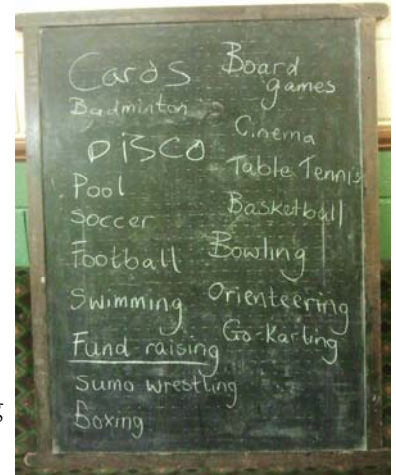 Cards
Badminton
DISCO
Pool
Soccer
Football
Swimming
Fund raising
Sumo wrestling
Boxing
Board
games
Cinema
Table Tennis
Basketball
Bowling
Orienteering
Go-Karting